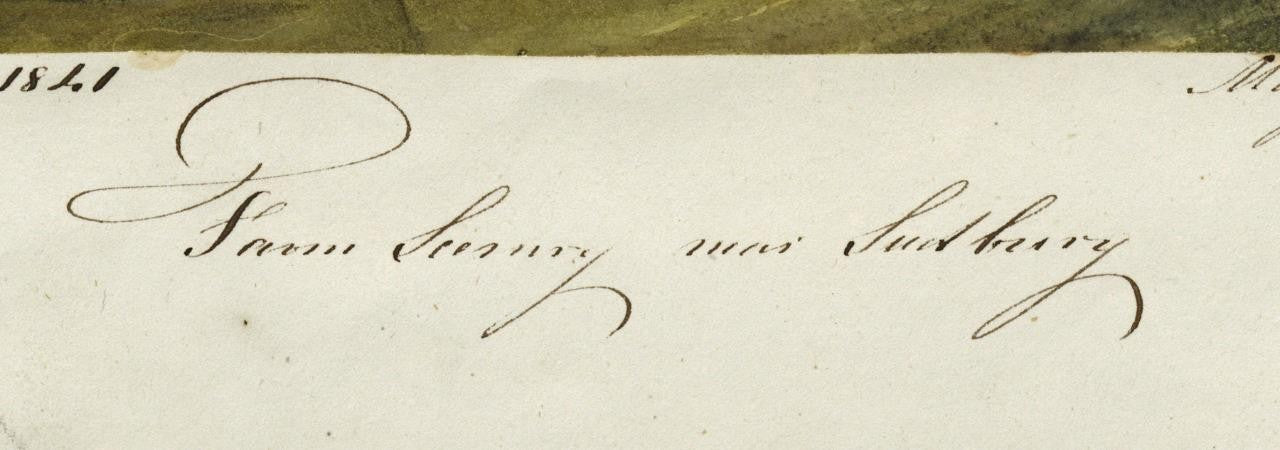 1841
Farm Scenery near Sudbury